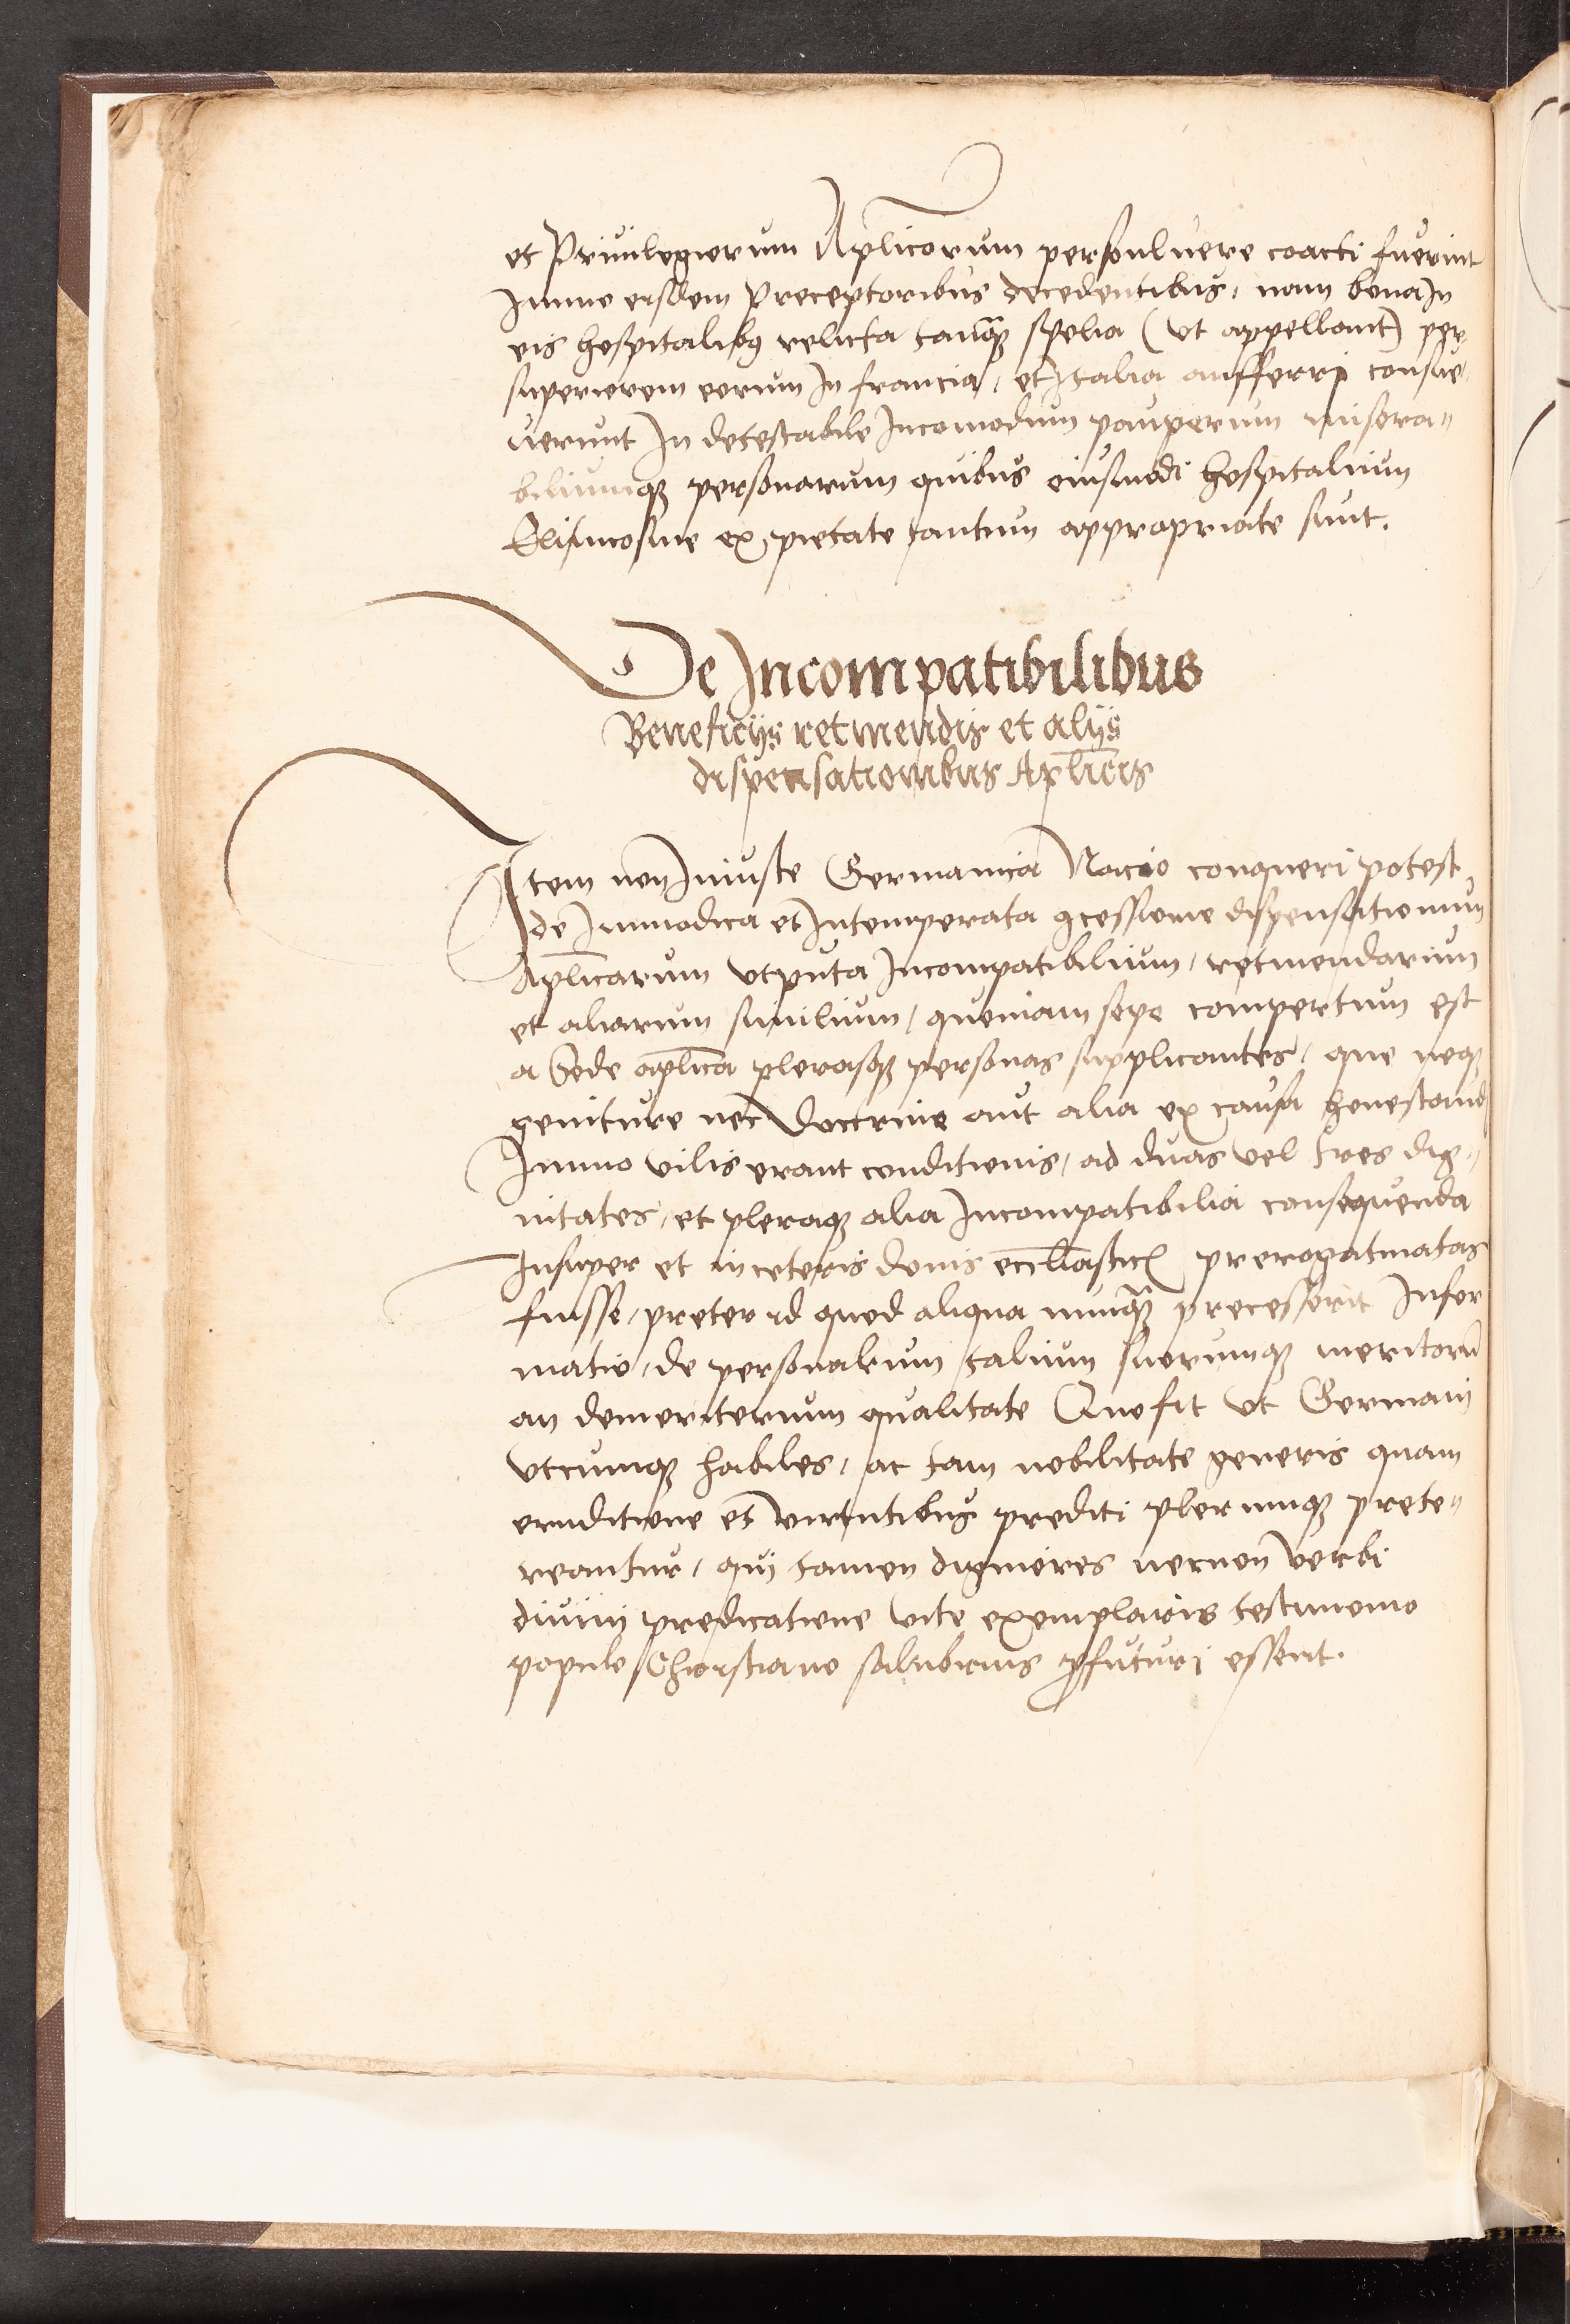 et Priuilegiorum Aplicorum personluere coacti fuerint
Immo eisdem Preceptoribus decedentibus, nam bona In
eis hospitalibꝯ relicta tanqꝫ spolia (vt appellant) per
superiorem eorum In francia, et Italia aufferri consue
uerunt In detestabile Incomodum pauperum misera〃
biliumqꝫ personarum quibus eiusmodi hospitalium
Elimosine ex pietate tantum appropriate sunt.
De Incompatibilibus
Beneficijs retinendis et alijs
dispensationibus Aplicis
Item non Iniuste Germanica Nacio conqueri potest
de Immodica et Intemperata ꝯcessione dispensationum
Aplicarum vtputa Incompatibilium, retinendarum
et aliarum similium, quoniam sepe compertum est
a Sede aplica plerasqꝫ personas supplicantes, que neqꝫ
geniture nec doctrine aut alia ex causa honestand
Immo vilis erant conditionis, ad duas vel tres dig〃
nitates, et pleraqꝫ alia Incompatibilia consequenda
Insuper et in ceteris donis eccliastic prerogatiuatas
fuisse, preter id quod aliqua nunqꝫ precesserit Infor
matio, de personarum talium suorumqꝫ meritorū
an demeritorum qualitate Quo fit vt Germani
vtcumqꝫ habiles, ac tam nobilitate generis quam
eruditione et virtutibus prediti plerumqꝫ prete〃
reantur, qui tamen digniores necnon verbi
diuini predicatione vite exemplaris testimonio
populo Christiano salubrius ꝓfuturi essent.